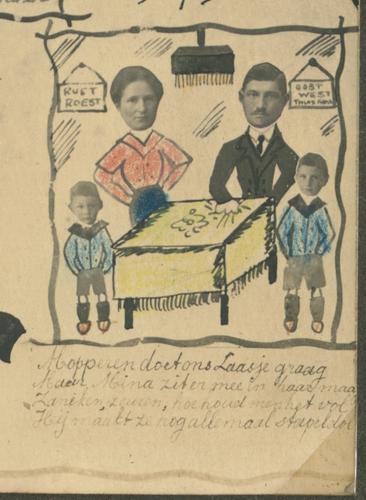 RUST
ROEST
OOST
WEST
THUIS
Mopperen doet ons Laasje graag
Maar Mina zit er mee in haar maa
Zaniken, zeuren, hoe houd men het vol
Hij maakt ze nog allemaal stapeldol